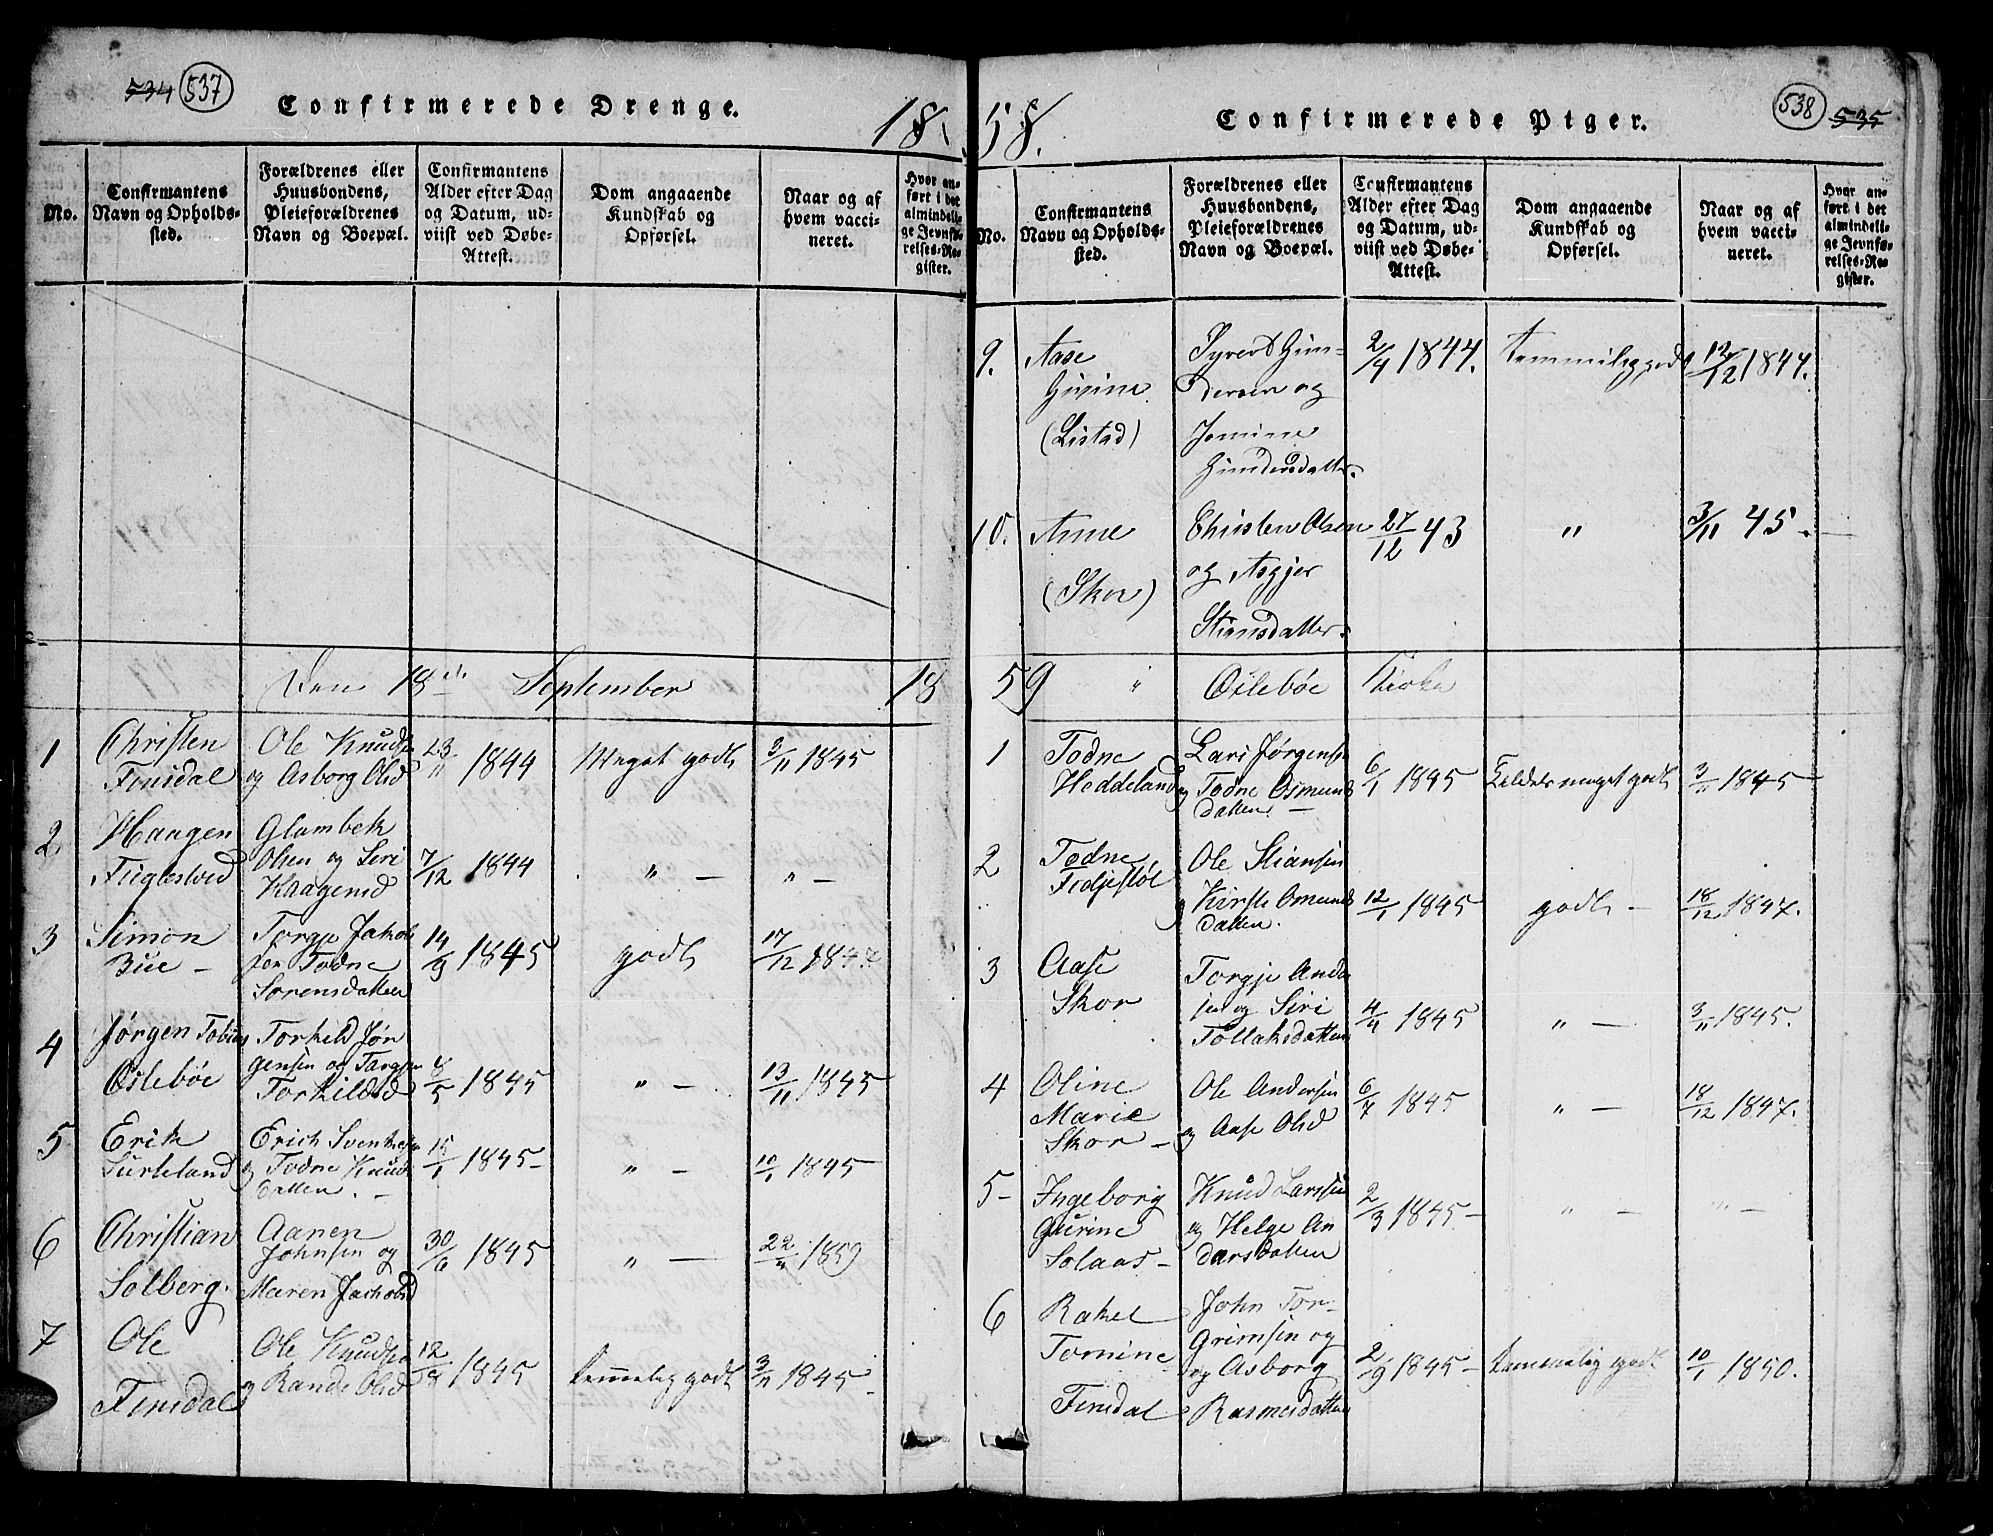 534 537
Confirmerede Drenge.
18
No.
Confirmantens
Navn og Opholds-
sted.
Forældrenes eller
Huusbondens,
Pleieforældrenes
Navn og Boepæl.
Confirmantens
Alder efter Dag
og Datum, ud-
viist ved Døbe-
Attest.
Dom angaaende
Kundskab og
Opførsel.
Naar og af
hvem vacci-
neret.
Hvor an-
ført i det
almindeli-
ge Jevnfø-
relses-Re-
gister.
Den 18de September 18
1
Christen
Finsdal
Ole Knuds
og Asborg Olsd
23/11 1844
Meget godt
3/11 1845
2
Haagen
Fuglestved
Glambek
Olsen og Siri
Haagensd
7/12 1844
" —
" —
3
Simon
Bue —
Torgje Jakob
sen Todne
Sørensdatter
14/9 1845
godt
17/12 1847
4
Jørgen Tobias
Øslebøe
Torkild Jør
gensen og Targjer
Torkildsd
8/5 1845
" —
13/11 1845
5
Erik
Surteland
Erich Svenks
og Todne Knuds
datter. —
15/1 1845 —
" —
10/1 1845
6
Christian
Solberg.
Aanen
Johnsen og
Maren Jachobsd
30/6 1845
" —
22/4 1859
7
Ole
Finsdal
Ole Knudsen
og Rande Olsd
12/8 1845
temmelig godt
3/11 1845 —
538 535
58.
Confirmerede Piger.
No.
Confirmantens
Navn og Opholds-
sted.
Forældrenes eller
Huusbondens,
Pleieforældrenes
Navn og Boepæl.
Confirmantens
Alder efter Dag
og Datum, ud-
viist ved Døbe-
Attest.
Dom angaaende
Kundskab og
Opførsel.
Naar og af
hvem vacci-
neret.
Hvor an-
ført i det
almindeli-
ge Jevnfø-
relses-Re-
gister.
9.
Aase
Gurine
(Listad)
Syvert Gun-
dersen og
Jomine
Gundersdatter.
2/4 1844.
temmelig godt
12/12 1844.
10.
Anne
(Skor)
Christen Olsen
og Asgjer
Stiansdatter.
27/12 43
"
3/11 45.
59 " Øslebøe Kirke
1
Todne
Heddeland
Lars Jørgens
og Todne Osmunds
datter. —
6/1 1845
meget godt
3/11 1845
2
Todne
Fidjestøl
Ole Stiansen
og Kirste Omunds
datter.
12/1 1845
godt —
18/12 1847.
3
Aase
Skor
Torgje Ander
sen og Siri
Tollaksdatter
4/4 1845
" —
3/11 1845.
4
Oline
Marie
Skor —
Ole Andersen
og Aase Olsd
6/7 1845
" —
18/12 1847.
5 —
Ingeborg
Gurine
Solaas —
Knud Larssen
og Helge An
dersdatter
2/3 1845 —
" —
" —
6
Rakel
Tomine
Finsdal
John Tor-
Grimsen og
og Asborg
Rasmusdatter
2/9 1845 —
temmelig godt
10/1 1850.